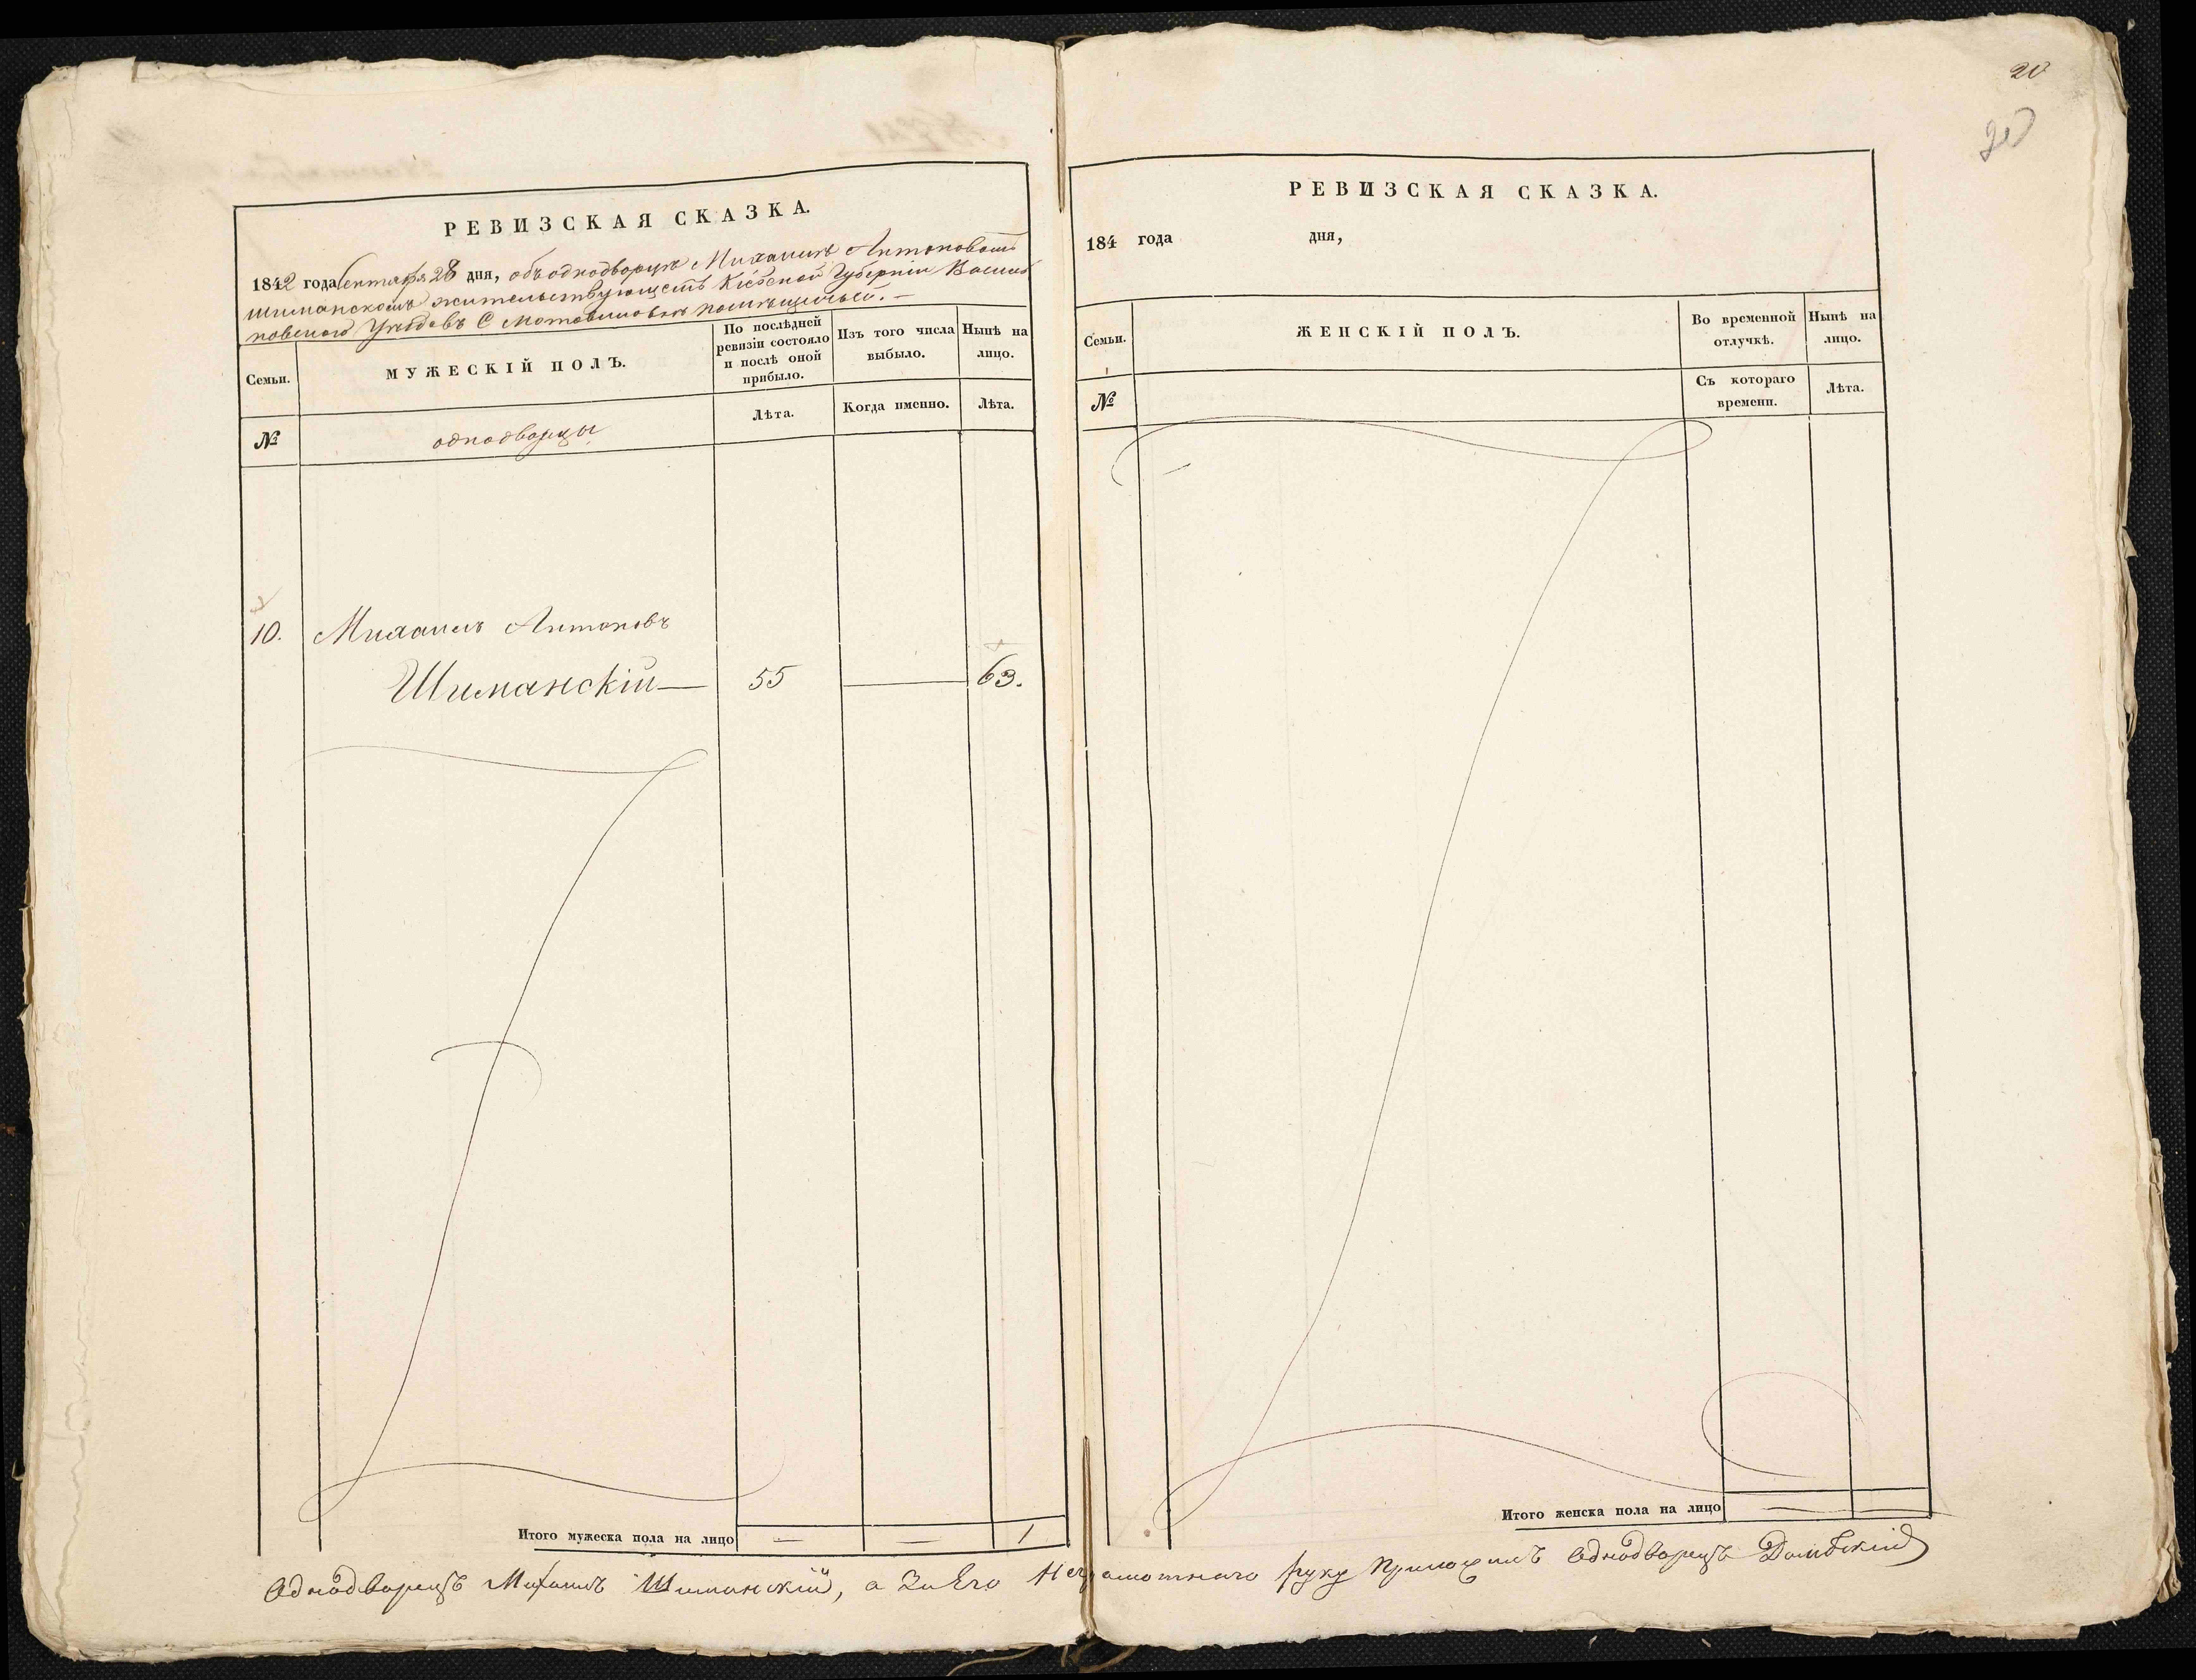 20
20
РЕВИЗСКАЯ СКАЗКА.
1842 года Сентября 28 дня, объ однодворцѣ Михаилѣ Антоновомъ
Шиманскомъ жительствующемъ Кіевской Губерніи Василь
ковскаго Уѣзда въ С Мотовиловкѣ помѣщичьей. —
Семьи.
МУЖЕСКІЙ ПОЛЪ.
По послѣдней
ревизіи состояло
и послѣ оной
прибыло.
Изъ того числа
выбыло.
Нынѣ на
лицо.
№
однодворцы
Лѣта.
Когда именно.
Лѣта.
10. Михаилъ Антоновъ
Шиманскій — 55 — 63.
Итого мужеска пола на лицо — — 1
РЕВИЗСКАЯ СКАЗКА.
184 года дня,
Семьи.
ЖЕНСКІЙ ПОЛЪ.
Во временной
отлучкѣ.
Нынѣ на
лицо.
№
Съ котораго
времени.
Лѣта.
Итого женска пола на лицо — —
Однодворецъ Михаилъ Шиманскій, а За Его Неграмотнаго руку Приложилъ Однодворецъ Домбскій